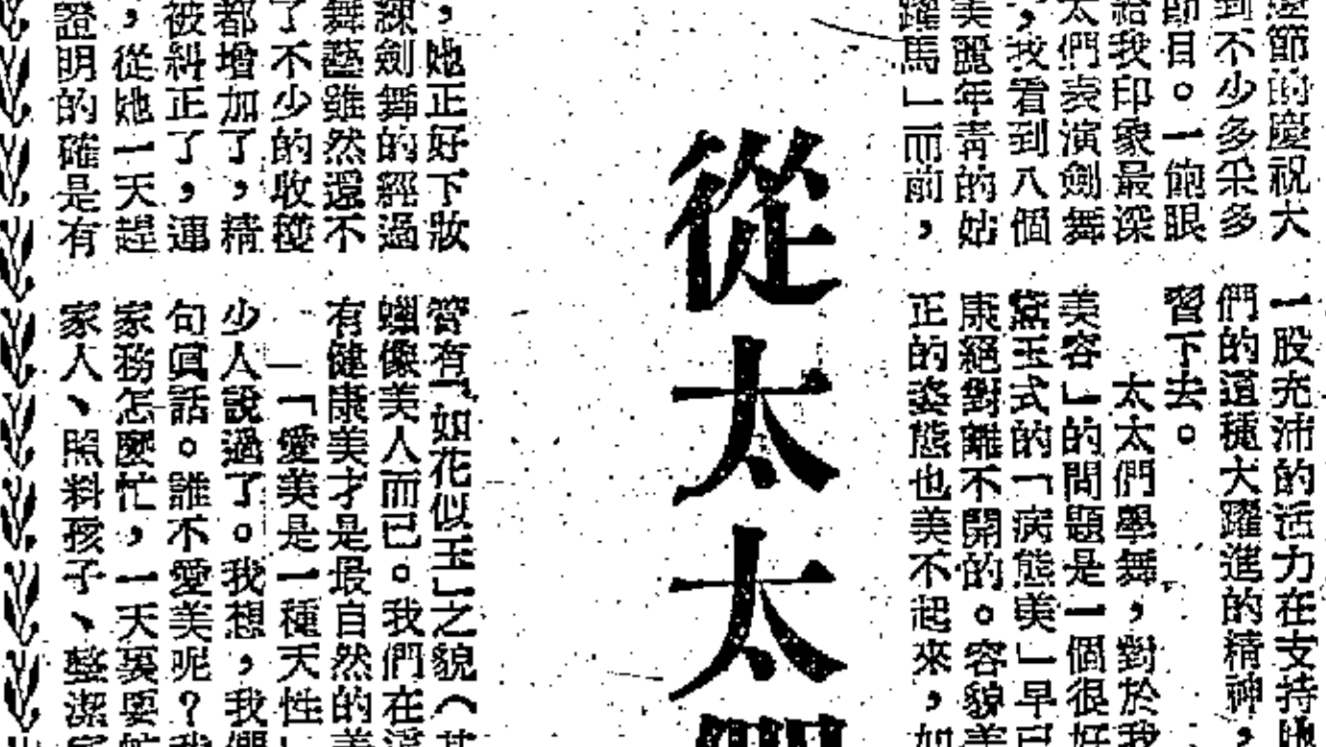 節的慶祝大
到不少多采多
節目。一飽眼
給我印象最深
太們表演劍舞
，我看到八個
美麗年青的姑
躍馬」而前，
一股充沛的活力在支持她
們的這種大躍進的精神，
習下去。
太太們學舞，對於我
美容」的問題是一個很好
黛玉式的「病態美」早已
康絕對離不開的。容貌美
正的姿態也美不起來，如
從太太們
，她正好下妝
練劍舞的經過
舞藝雖然還不
了不少的收穫
都增加了，精
被糾正了，連
，從她一天趕
證明的確是有
管有「如花似玉」之貌（其
蠟像美人而已。我們在
有健康美才是最自然的美
—「愛美是一種天性」
少人說過了。我想，我們
句眞話。誰不愛美呢？我
家務怎麼忙，一天裏要忙
家人、照料孩子、整潔家